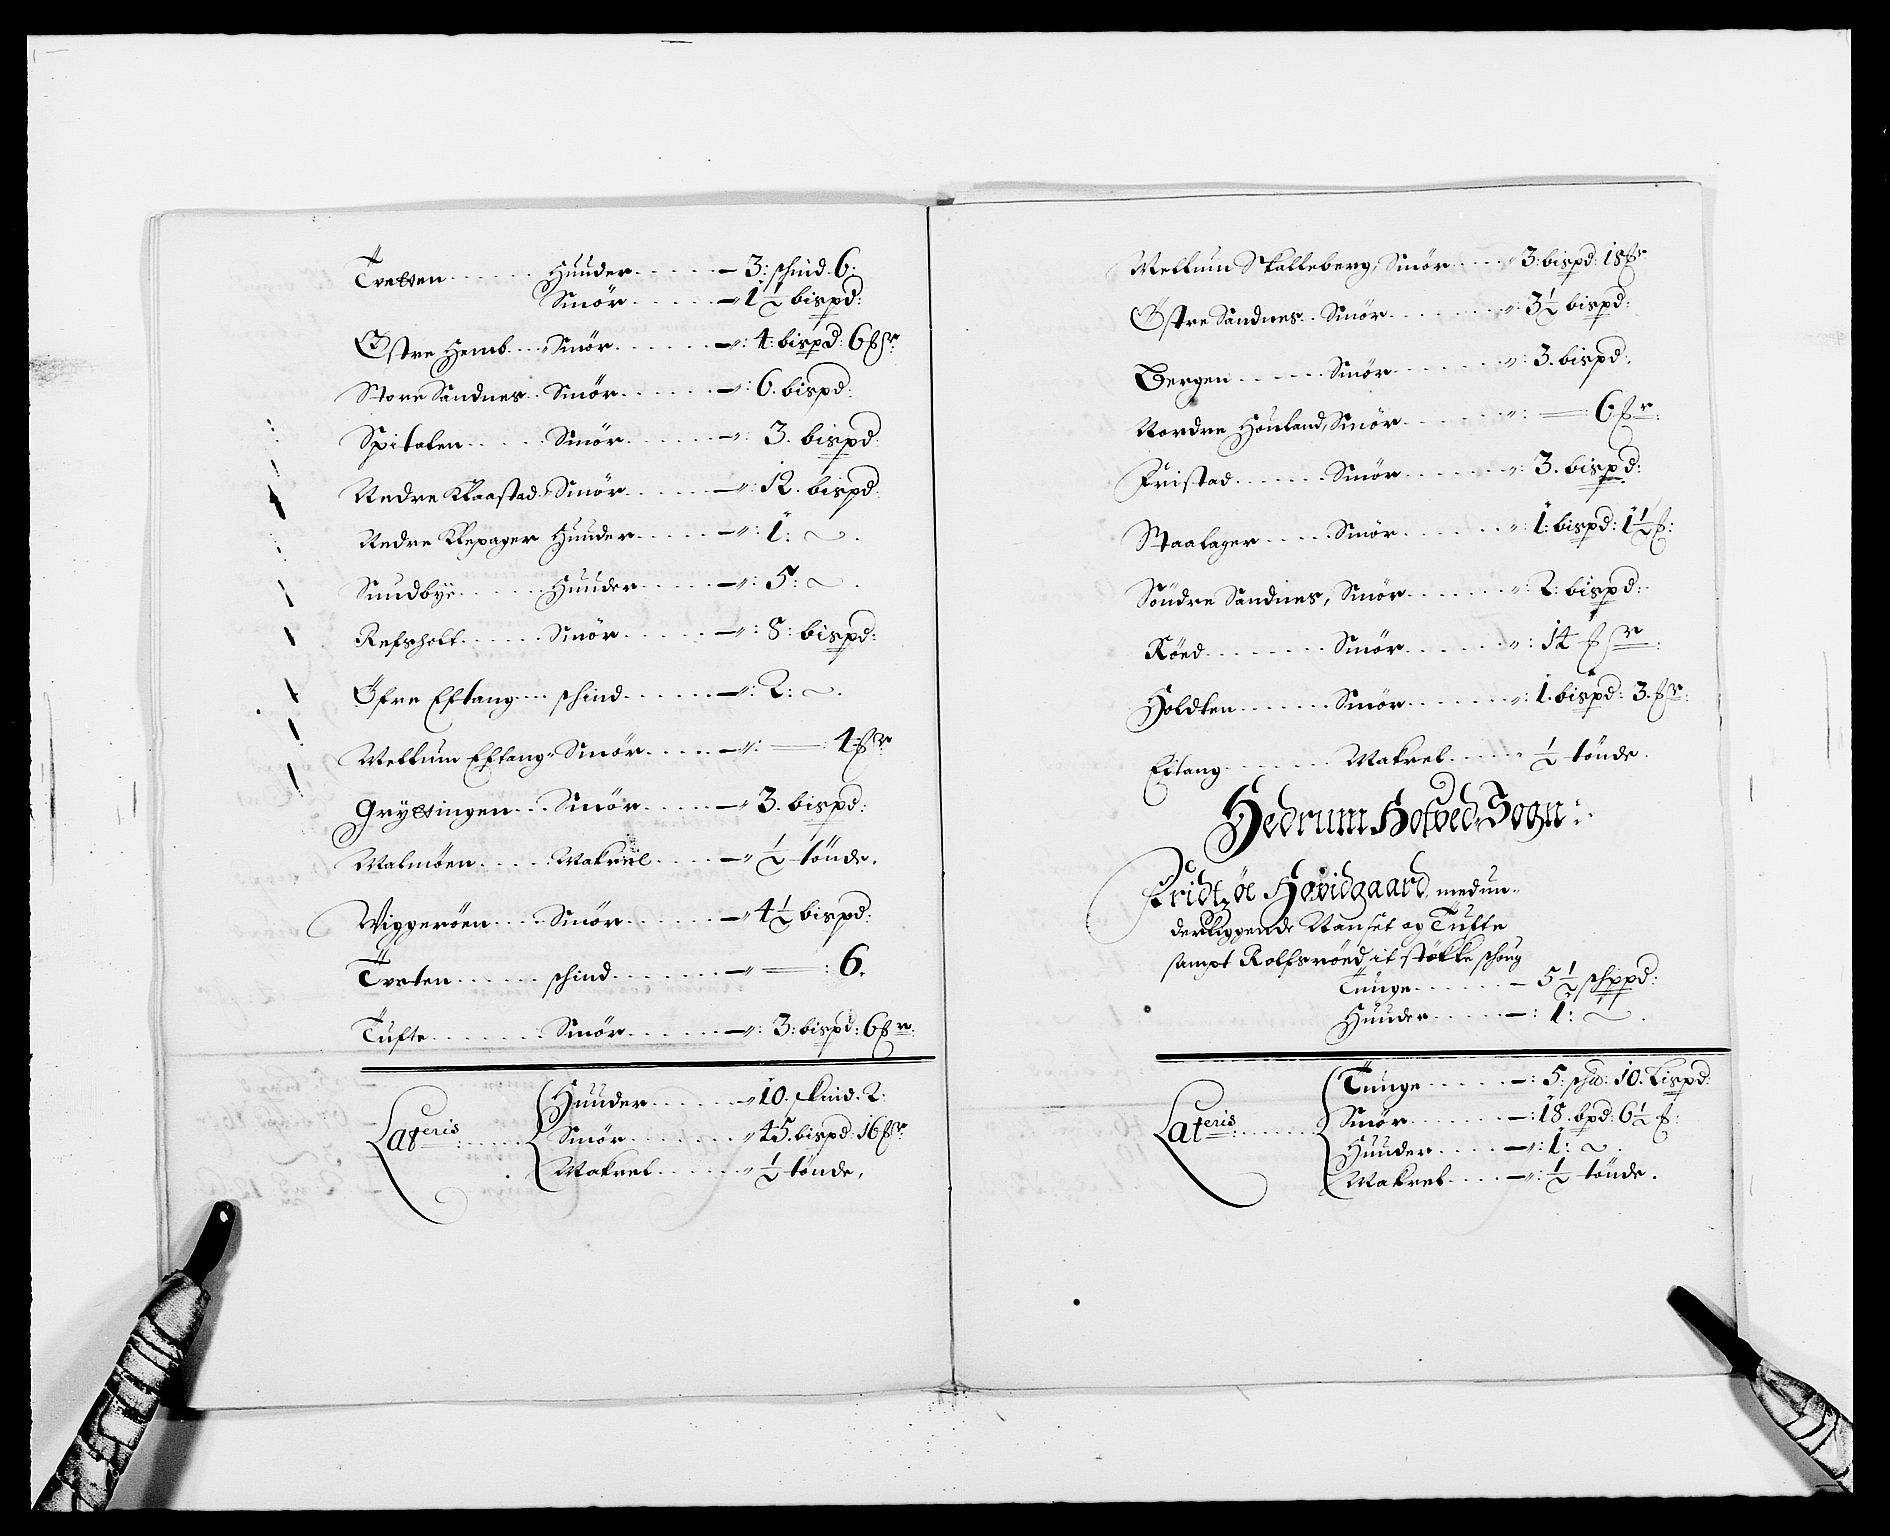 Tvetten . . . . . . Huuder . . . . . . – 3: schind 6:
Smör . . . . . . – 1½ bispd:
Østre Hemb . . . Smör . . . . . . –: 4: bispd: 6 ℔r
Store Sandnes . . Smör . . . . . . –: 6. bispd:
Spitalen . . . . . Smör . . . . . . –: 3. bispd:
Nedre Klaastad . Smör . . . . . . –: 12. bispd
Nedre Klepager Huuder . . . . . –: 1: ~ .
Sundbye . . . . . . Huuder . . . . . –: 5: ~ .
Refsholt . . . . . . Smör . . . . . . –: 8: bispd:
Øfre Eftang . . . schind . . . . . . –: 2: ~ .
Mellum Eftang . Smör . . . . . –: — : 4 ℔r
Gryttingen . . . Smör . . . . . – 3. bispd:
Malmöen . . . . . Makrel . . . . . – ½ tönde .
Viggeröen . . . . Smör . . . . . . – 4½ bispd:
Tveten . . . . . . schind . . . . . . – — : 6.
Tufte . . . . . . . Smör . . . . . . –: 3: bispd: 6 ℔r:
Lateris: . . . . . Huuder . . . . . . 10. skind. 2:
Smör . . . . . . . 45. bispd: 16 ℔r
Makrel . . . . . . ½ tönde .
Mellum Skalleberg, Smör . . . . 3: bispd: 18 ℔r
Østre Sandnes . . Smör . . . . . . . 3½ bispd:
Bergen . . . . . . Smör . . . . . . : 3. bispd.
Nordre Houland, Smör . . . . . . : — 6 ℔r:
Fristad . . . . . . Smör . . . . . . : 3. bispd:
Staalager . . . . . Smör . . . . . . : 1: bispd: 1½ ℔:
Söndre Sandnes, Smör . . . . . . : 2: bispd:
Röed . . . . . . . . Smör . . . . . . : 14 ℔r:
Holdten . . . . . . Smör . . . . . . : 1. bispd: 3. ℔r:
Eftang . . . . . . . Makrel . . . . . ½ tönde .
Hedrum Hofved Sogn:
Fridtzöe Hovidgaard med un-
derliggende Nanset og Tufte
sampt Rolfsröed it stökke schoug
Tunge . . . . . . – 5½ schppd:
Huuder . . . . . –: 1: ~ .
Lateris: . . . . . Tunge . . . . . –: 5: schp: 10. Lispd:
Smör . . . . . . –: 18. bpd: 6½ ℔:
Huuder . . . . –: 1: ~ .
Makrel . . . . –: ½ tönde .